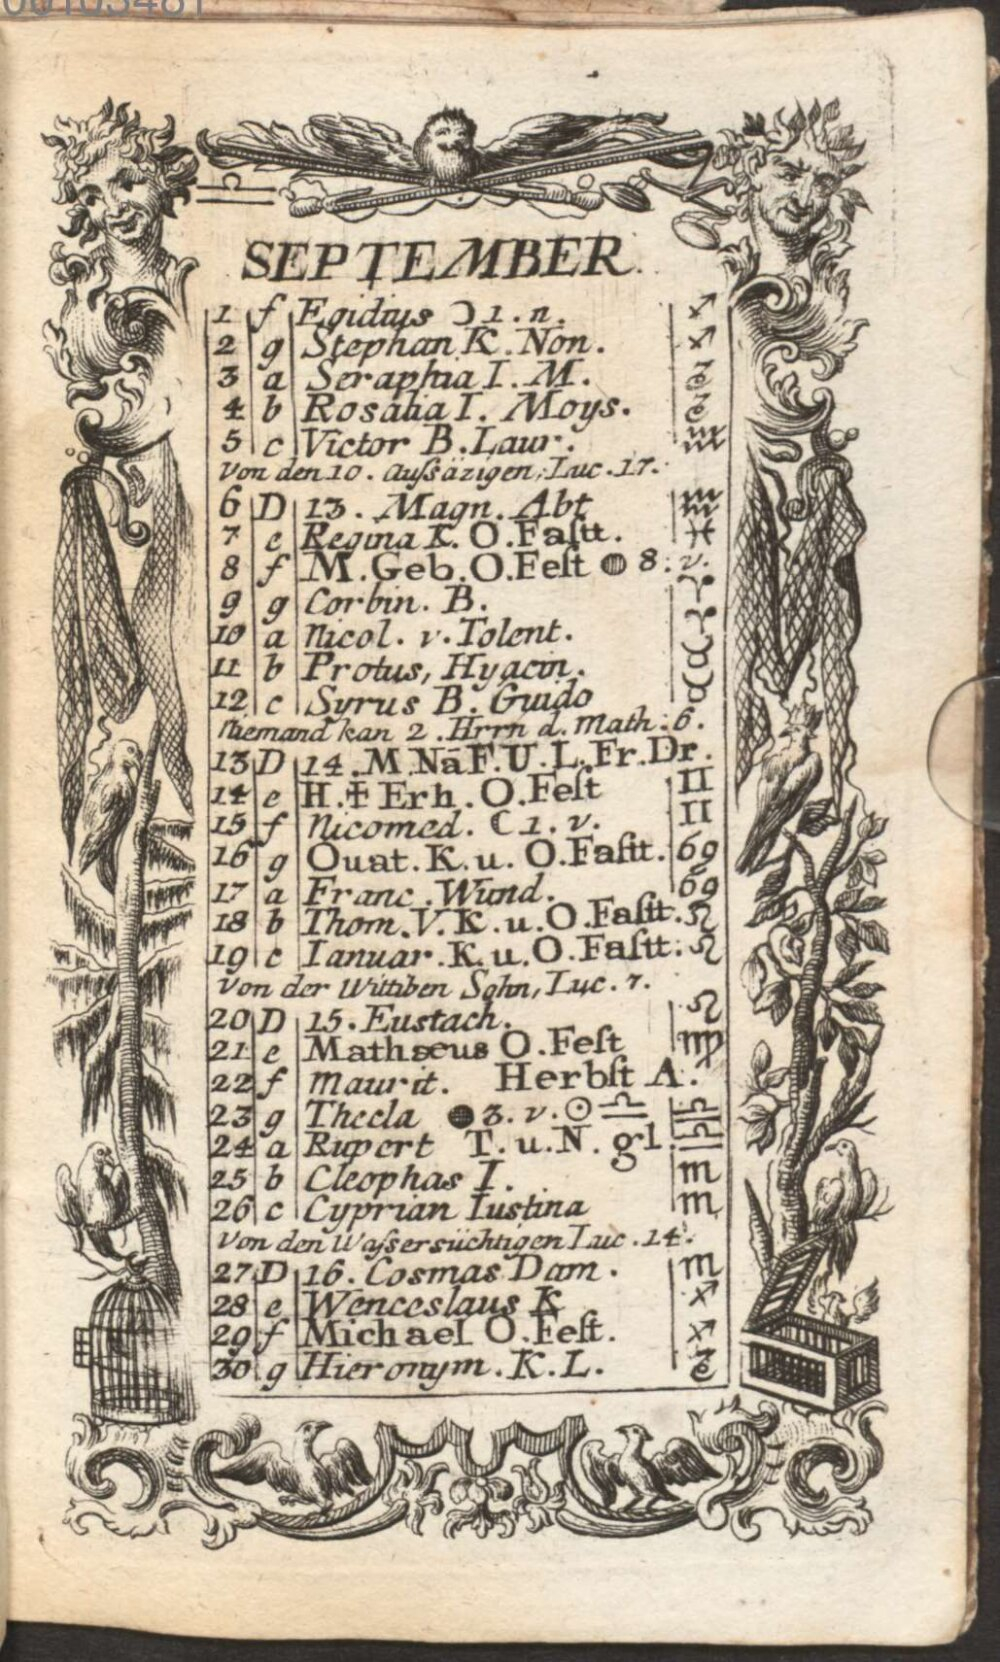 00103481
SEPTEMBER.
1 f Egidius ☽ 1. n. ♐
2 g Stephan K. Non. ♐
3 a Seraphia I. M. ♑
4 b Rosalia I. Moys. ♑
5 c Victor B. Laur. ♒
Von den 10. Aussäzigen, Luc. 17.
6 D 13. Magn. Abt ♒
7 e Regina K. O. Fastt. ♓
8 f M. Geb. O. Fest 8. v.
9 g Corbin. B. ♈
10 a Nicol. v. Tolent. ♈
11 b Protus, Hyacin. ♉
12 c Syrus B. Guido ♉
Niemand kan 2. Hrrn d. Math. 6.
13 D 14. M. Nã F. U. L. Fr. Dr.
14 e H. ✝ Erh. O. Fest ♊
15 f Nicomed. ☾ 1. v. ♊
16 g Quat. K. u. O. Fastt. ♋
17 a Franc. Wund. ♋
18 b Thom. V. K. u. O. Fastt. ♌
19 c Ianuar. K. u. O. Fastt. ♌
Von der Wittiben Sohn, Luc. 7.
20 D 15. Eustach. ♌
21 e Mathæus O. Fest ♍
22 f Maurit. Herbst A.
23 g Thecla ● 3. v. ☉ ♎ ♎
24 a Rupert T. u. N. gl. ♎
25 b Cleophas I. ♏
26 c Cyprian Iustina ♏
Von den Wassersüchtigen Luc. 14.
27 D 16. Cosmas Dam. ♏
28 e Wenceslaus K ♐
29 f Michael O. Fest. ♐
30 g Hieronym. K. L. ♑